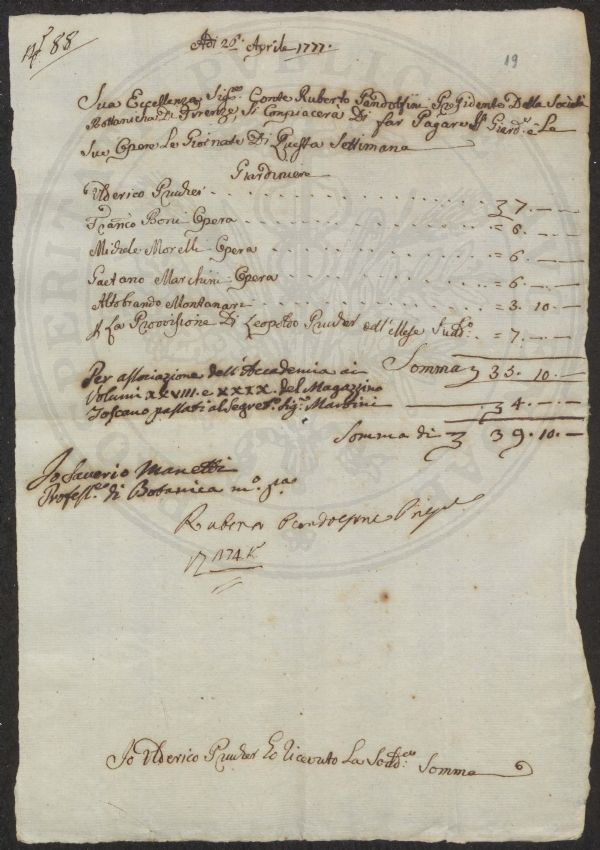 N.° 88
Adi 26. Aprile 1777.
19
Sua Eccellenza Sig.re Conte Ruberto Pandolfini Presidente Della Società
Bottanicha Di Firenze Si Compiacerà Di far Pagare Al Giard.e e Le
Sue Opere Le Giornate Di Questa Settimana
Giardiniere
Ulderico Prucher . . . 7. — —
Franco Boni Opera . . . = 6. — —
Michele Morelli Opera . . . = 6. — —
Gaetano Marchini Opera . . . = 6. — —
Altobrando Montanari . . . = 3. 10. —
A La Provvisione Di Leopoldo Prucher dell'Mese Sud.o = 7. — —
Somma 35. 10. —
Per associazione dell'Accademia ai
Volumi XXVIII e XXIX del Magazzino
Toscano passati al Segret.o Sig.r Martini — 4. — —
Somma di 39. 10. —
Io Saverio Manetti
Profess.re di Botanica m.o p.a
Ruberto Pandolfini
Io Ulderico Prucher Ho Ricevuto La Sud.a Somma